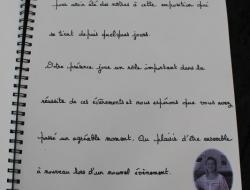 pour avoir été des nôtres à cette exposition qui
se tient depuis quelques jours.
Votre présence joue un rôle important dans la
réussite de ces évènements et nous espérons que vous avez
passé un agréable moment. Au plaisir d'être ensemble
à nouveau lors d'un nouvel évènement.